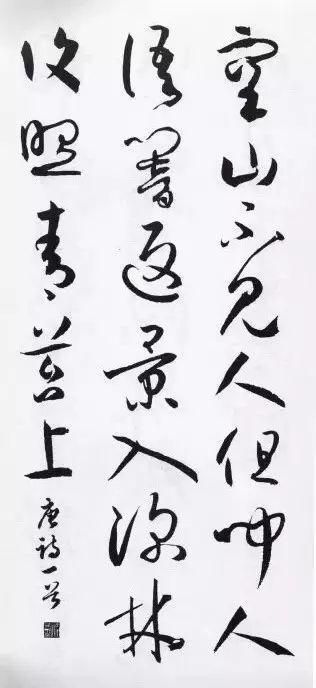 空山不見人但聞人
語響返景入深林
復照青苔上
唐詩一首